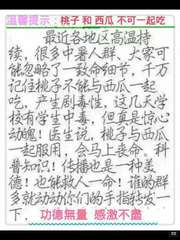 温馨提示：桃子和西瓜不可一起吃
最近各地区高温持
续，很多中暑人群、大家可
能忽略了一致命细节，千万
记住桃子不能与西瓜一起
吃，产生剧毒性，这几天学
校有学生中毒，但真是惊心
动魄！医生说，桃子与西瓜
一起服用，会马上丧命，科
普知识！传播也是一种美
德！也能救人一命！谁的群
多就动动你们的手指转发一
下。
功德無量 感激不盡